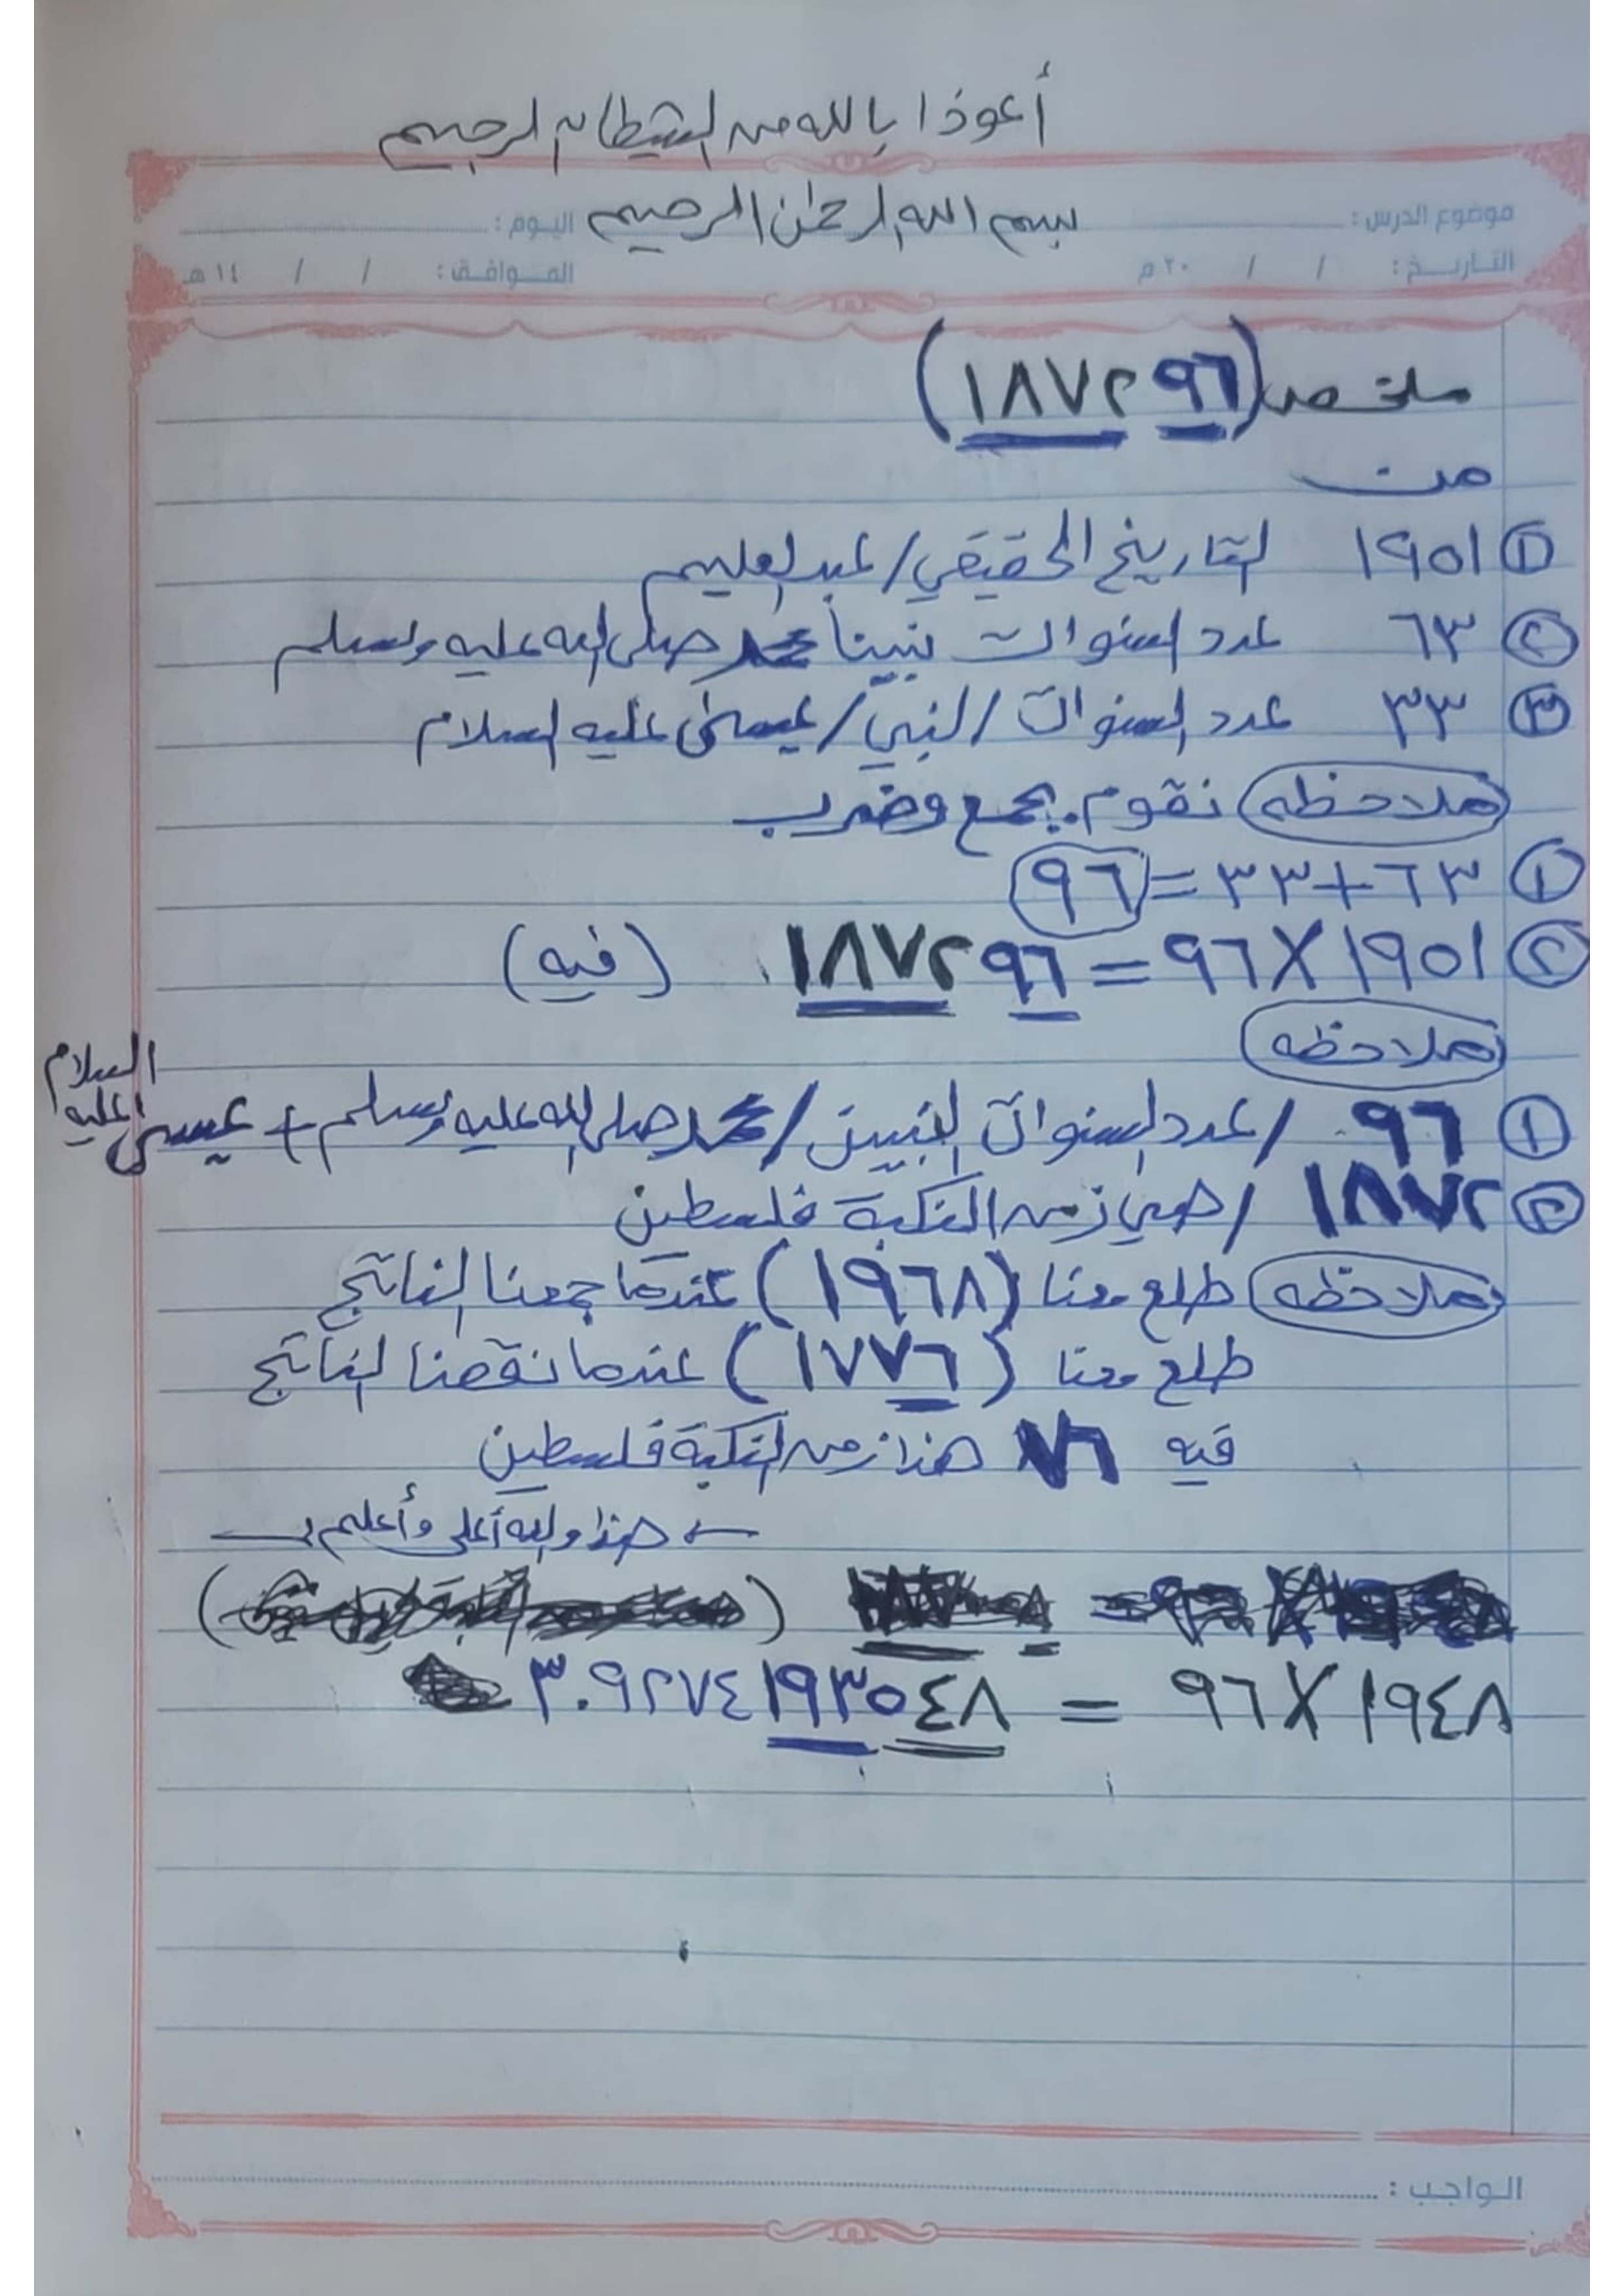 أعوذا بالله من الشيطان الرجيم
بسم الله الرحمن الرحيم
موضوع الدرس : اليوم :
التاريخ : / / ٢٠ م الموافق : / / ١٤ هـ
ملخص (١٨٧٢٩٦)
من
١ ١٩٥١ التاريخ الحقيقي / عبد العليم
٢ ٦٣ عدد السنوات نبينا محمد صلى الله عليه وسلم
٣ ٣٣ عدد السنوات / النبي / عيسى عليه السلام
ملاحظه نقوم بجمع وضرب
١ ٦٣+٣٣=٩٦
٢ ١٩٥١×٩٦=١٨٧٢٩٦ (فيه)
ملاحظه
١ ٩٦ / عدد السنوات النبيين / محمد صلى الله عليه وسلم + عيسى عليه السلام
٢ ١٨٧٢ / هي زمن النكبة فلسطين
ملاحظه طلع معنا (١٩٦٨) عندما جمعنا الناتج
طلع معنا (١٧٧٦) عندما نقصنا الناتج
فيه ٧٦ هذا زمن النكبة فلسطين
هذا والله أعلى وأعلم
١٩٤٨×٩٦ = ٣٠٩٢٧٤١٩٣٥٤٨
الواجب :